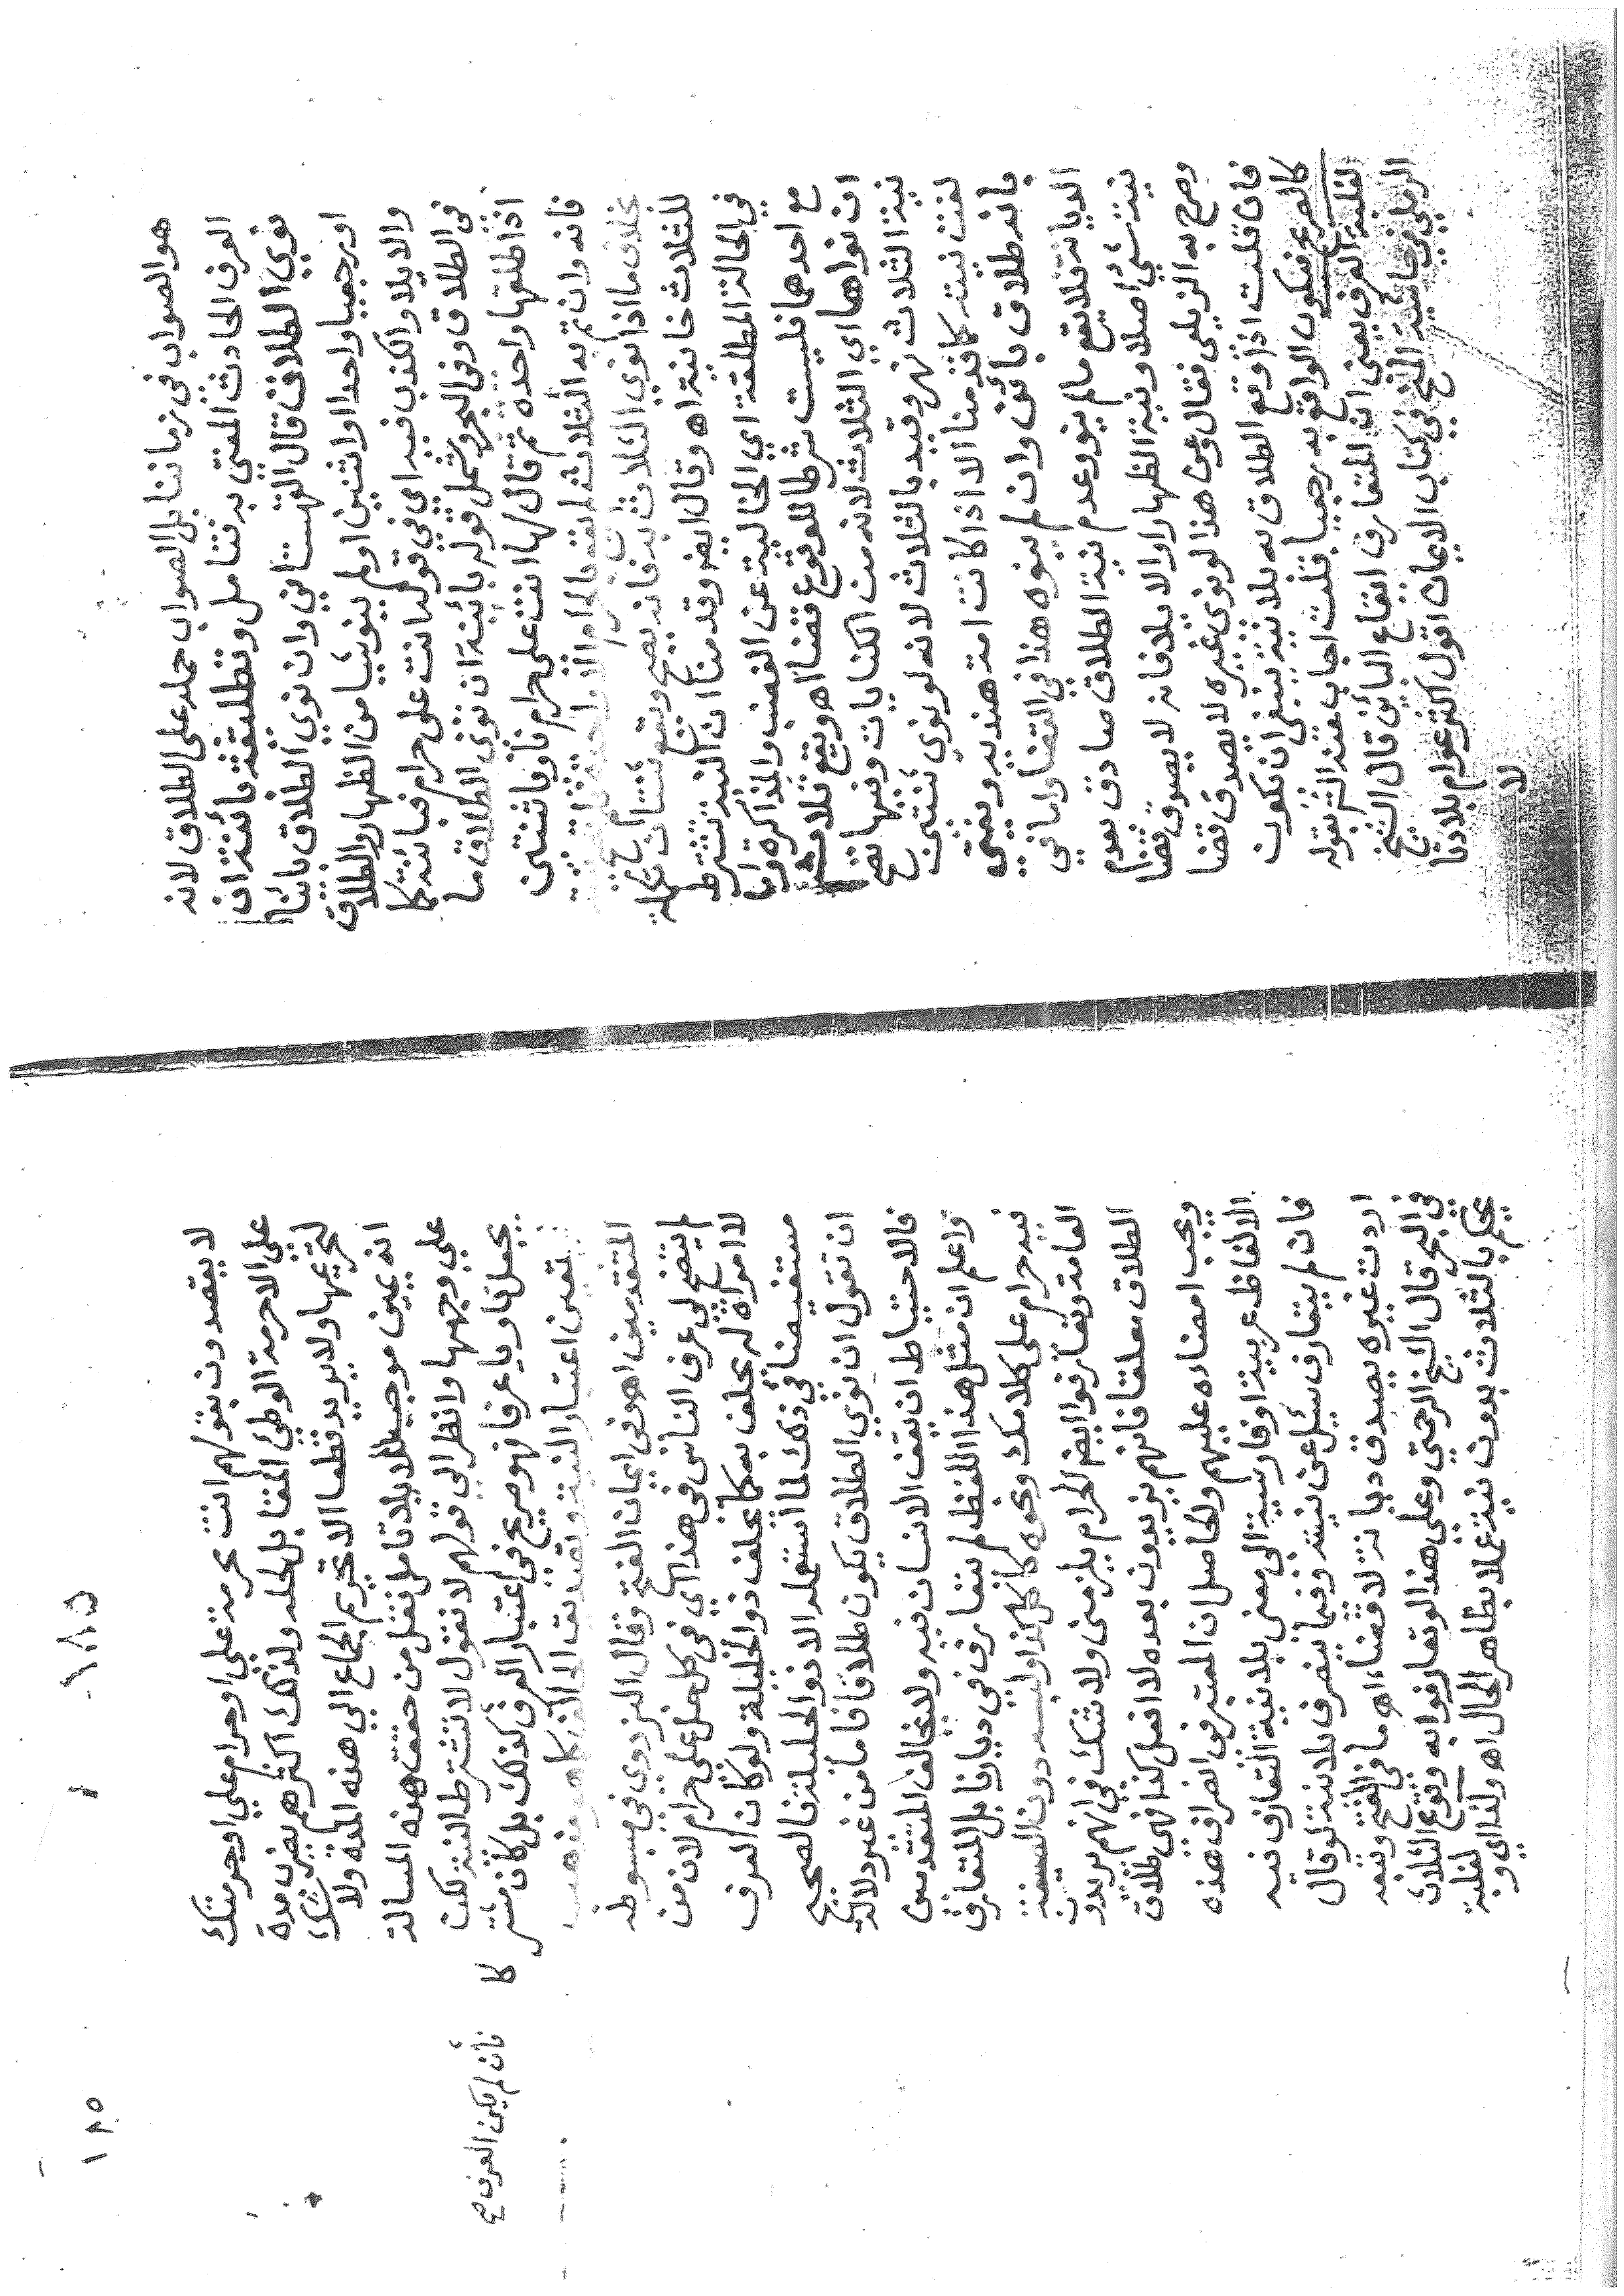 هو الصواب في زماننا بل الصواب حمله على الطلاق لانه
العرف الحادث المفتى به فتامل وتطليقة بائنة ان
نوى الطلاق قال القهستاني وان نوى الطلاق بائنا
او رجعيا واحدا او اثنين او لم ينو شيا من الظهار والطلاق
والايلاء والكذب فيه اي في قوله انت علي حرام فبائنة كا
في الطلاق وفي البحر وشمل قوله بائنة ان نوى الطلاق ما
اذا طلقها واحدة ثم قال لها انت علي حرام ناويا ثنتين
فانه وان تم به الثلاث لم يقع بالحرام الا واحدة
بخلاف ما اذا نوى الثلاث به فانه يصح ويقع ثنتان تكملة
للثلاث خانية اه وقال ايضا وقدمنا ان النية تشترط
في الحالة المطلقة اي الخالية عن الغضب والمذاكرة وان
مع احدهما فليست شرطا للوقوع قضا اه ويقع ثلاث
ان نواها اي الثلاث لانه من الكنايات وفيها تصح
نية الثلاث نهر وقيد بالثلاث لانه لو نوى ثنتين
لغت نيته كا قدمنا الا اذا كانت امة هنديه ويفتى
بانه طلاق بائن وان لم ينوه هذا في القضا واما في
الديانة فلا يقع ما لم ينو وعدم نية الطلاق صادق بعدم
نية شي اصلا وبنية الظهار او الايلا فانه لا يصدق قضا
وصرح به الزيلعي فقال وعن هذا لو نوى غيره لا يصدق قضا
فان قلت اذا وقع الطلاق به بلا نية ينبغي ان يكون
كالصريح فيكون الواقع به رجعيا قلت اجاب عنه بقوله
لغلبة العرف يعني ان المتعارف ايقاع البائن قال الشيخ
الرملي في حاشية المنح في كتاب الايمان اقول اكثر عوام بلادنا
لا
١٨٥
١٨٥
لا يقصدون بقولهم انت محرمة علي او حرام علي او حرمتك
على الا حرمة الوطئ المقابل لحله ولذلك اكثرهم يضرب مدة
لتحريمها ولا يريد قطعا الا تحريم الجماع الى هذه المدة ولا شك
انه يمين موجب للايلا تامل فقل من حقق هذه المسالة
على وجهها وانظر الى قولهم لا نقول لا تشترط النية لكن
يجعل ناويا عرفا فهو صريح في اعتبار العرف كذلك بل كان مشتركا
فان لم يكن العرف صح
تعين اعتبار النية وتصديق الحالف كا هو مذهب
المتقدمين اه وفي ايمان الفتح وقال البزدوي في مبسوطه
لم يتضح لي عرف الناس في هذا اي في كل حل علي حرام لان من
لا امراة له يحلف به كا يحلف ذو الحليلة ولو كان العرف
مستفيضا في ذلك لما استعمله الا ذو الحليلة فالصحيح
ان نقول ان نوى الطلاق يكون طلاقا فاما من غير دلالة
فالاحتياط ان يقف الانسان فيه ولا يخالف المتقدمين
واعلم ان مثل هذا اللفظ لم يتعارف في ديارنا بل المتعارف
فيه حرام علي كلامك ونحوه كاكل كذا ولبسه دون الصيغة
العامة وتعارفوا ايضا الحرام يلزمني ولا شك في انهم يريدون
الطلاق معلقا فانهم يزيدون بعده لا افعل كذا فهي طلاق
ويجب امضاه عليهم والحاصل ان المعتبر في انصراف هذه
الالفاظ عربية او فارسية الى معنى بلا نية التعارف فيه
فان لم يتعارف سئل عن نيته وفيما ينصرف بلا نية لو قال
اردت غيره يصدق ديانة لا قضاء اه ما في الفتح وتبعه
في البحر قال الشيخ الرحمتي وعلى هذا لو تعارفوا به وقوع الثلاث
يحكم بالثلاث بدون نية عملا بظاهر الحال اه ولذا اي ولغلبة